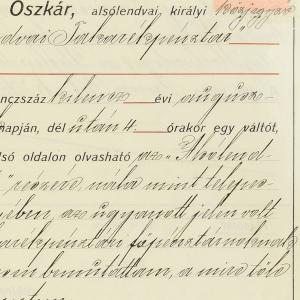 Oszkár, alsólendvai királyi közjegyző
dvai Takarékpénztár
nczszáz kilencz évi augusz-
napján, dél után 4 órakor egy váltót,
lső oldalon olvasható az "Alsólend-
" részére, nála mint telepes-
ében, az ugyanott jelen volt
arékpénztári főpénztárnoknak
em bemutattam, a mire tőle